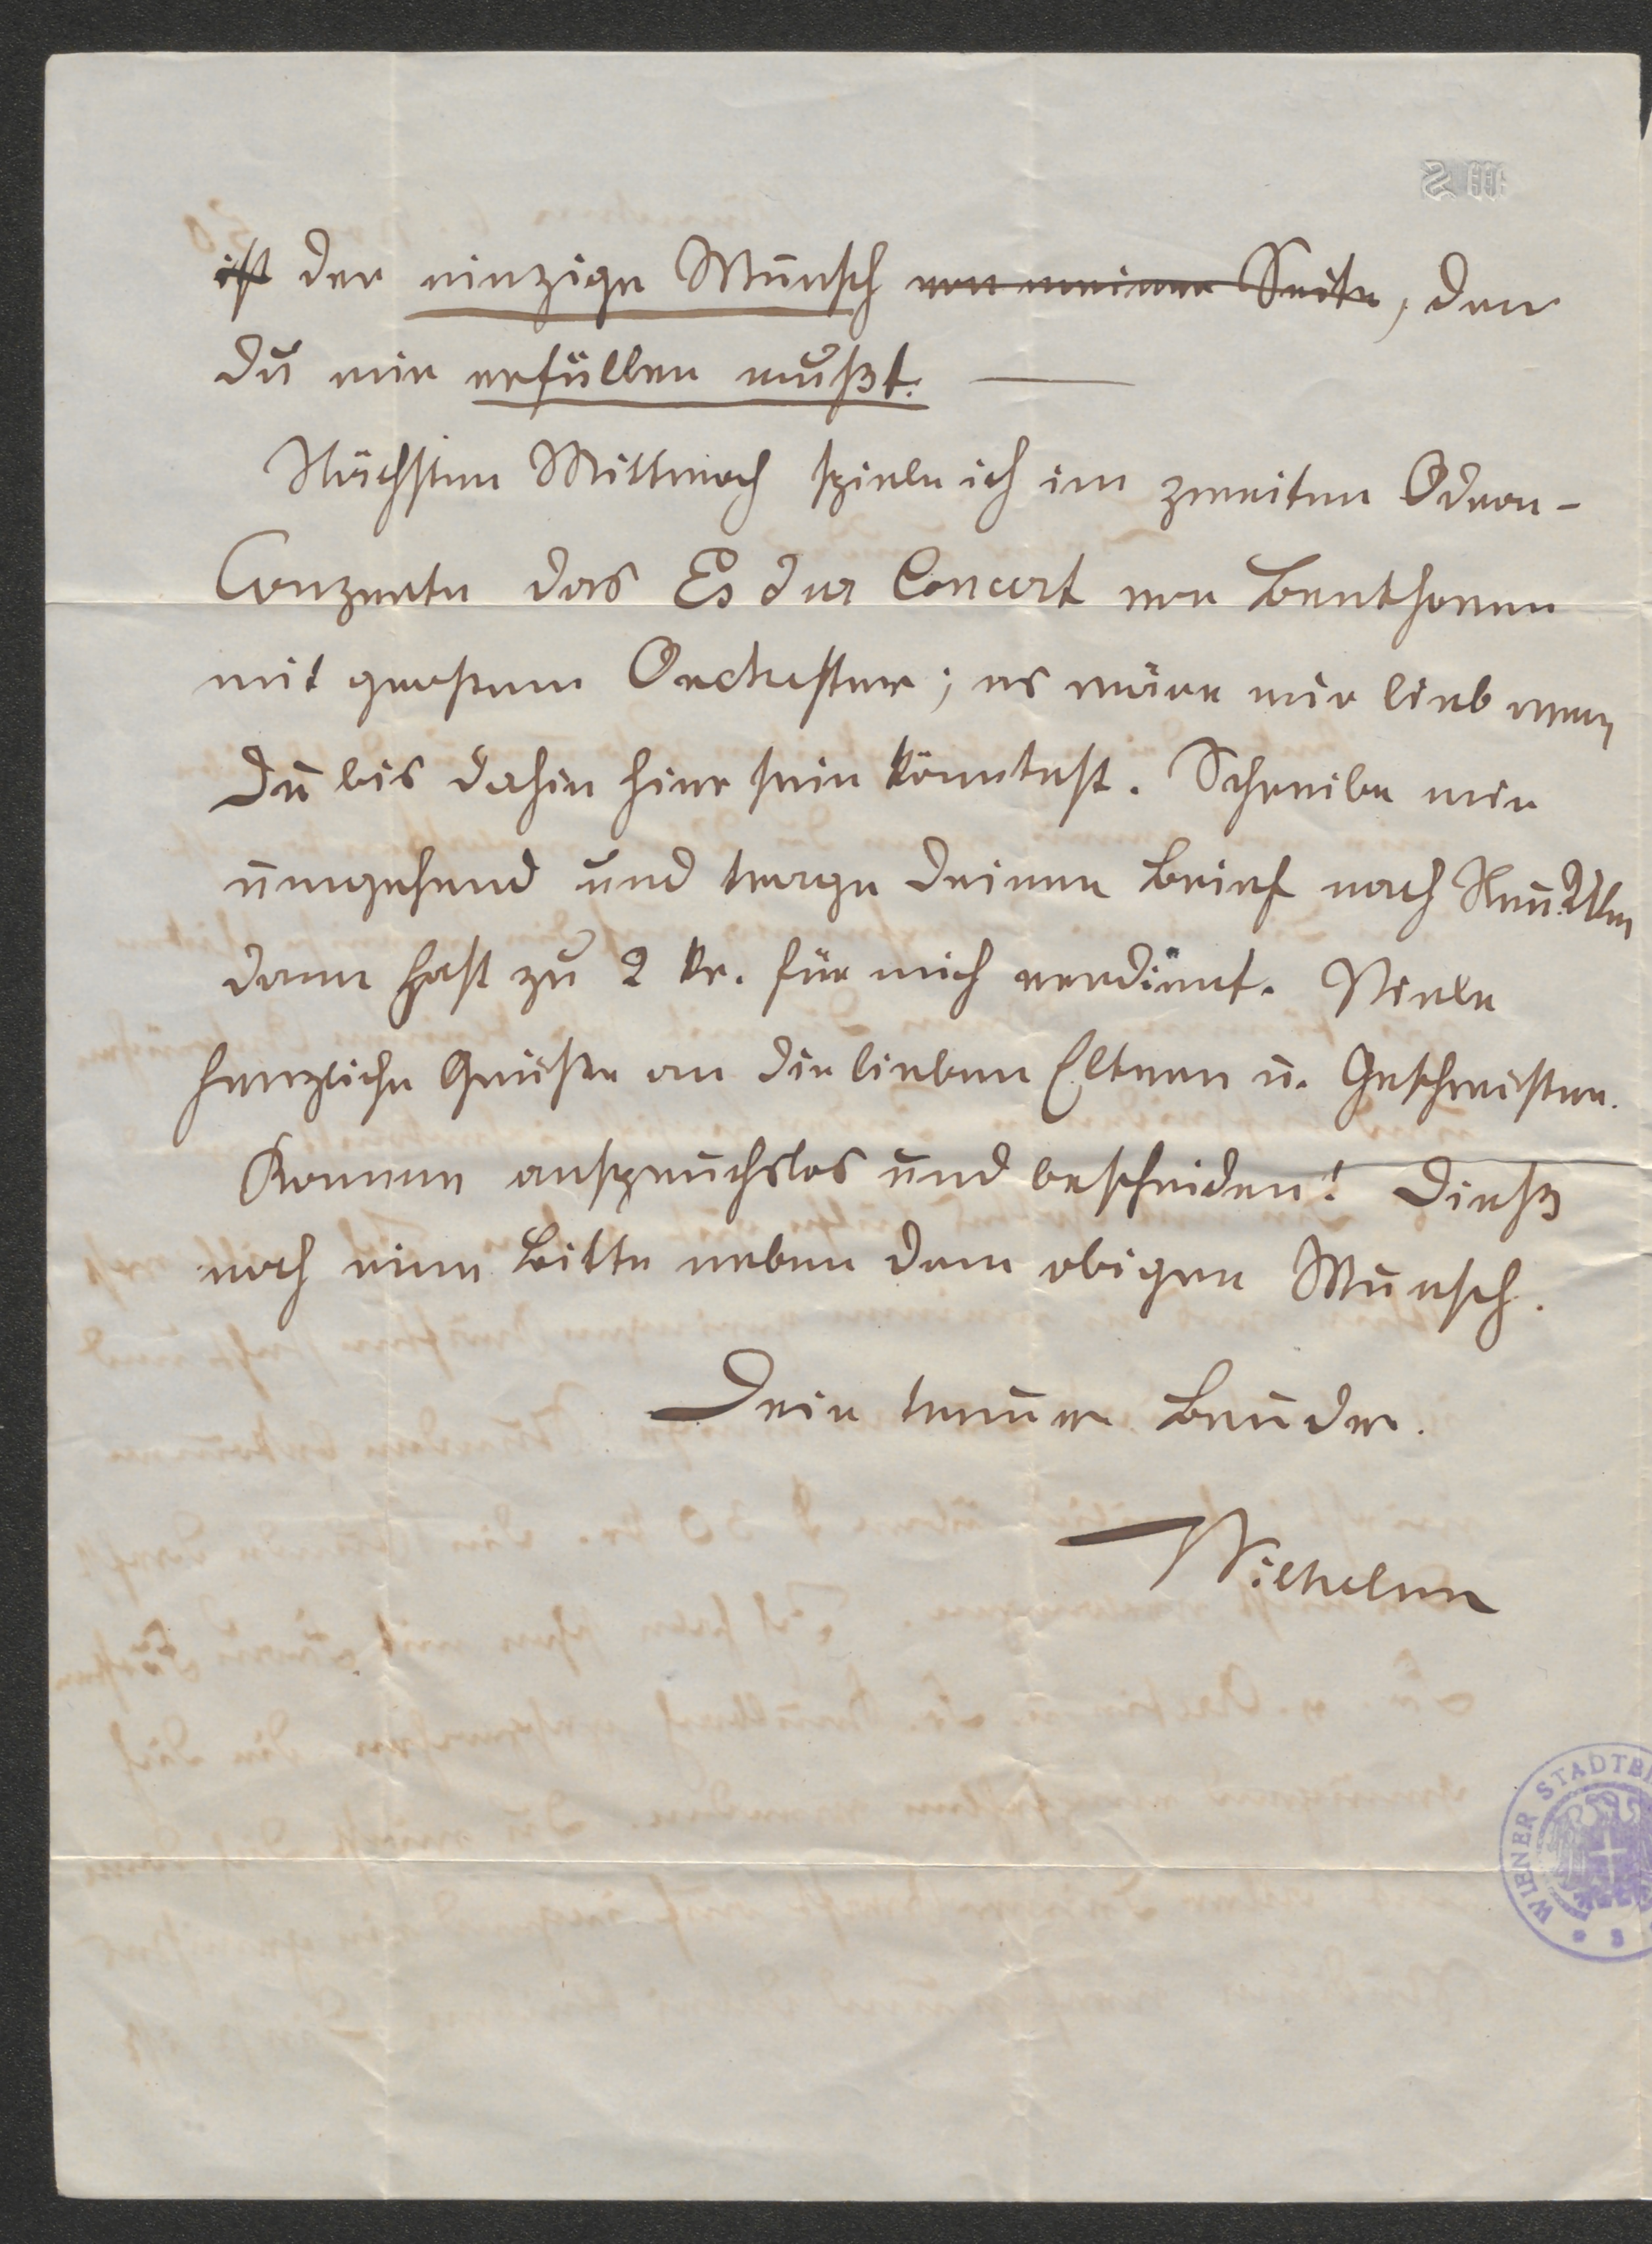 ist der einzige Wunsch von meiner Seite, den
Du mir erfüllen mußt. —
Nächsten Mittwoch spiele ich im zweiten Odeon-
Conzerte das Es dur Concert von Beethoven
mit großem Orchester; es wäre mir lieb wenn
Du bis dahin hier sein könntest. Schreibe mir
umgehend und trage deinen Brief nach Neu-Ulm
dann hast zu 2 kr. für mich verdient. Viele
herzliche Grüße an die lieben Eltern u. Geschwister.
Komme anspruchslos und bescheiden! Dieß
noch eine Bitte neben dem obigen Wunsch.
Dein treuer Bruder.
Wilhelm
WIENER STADTBI